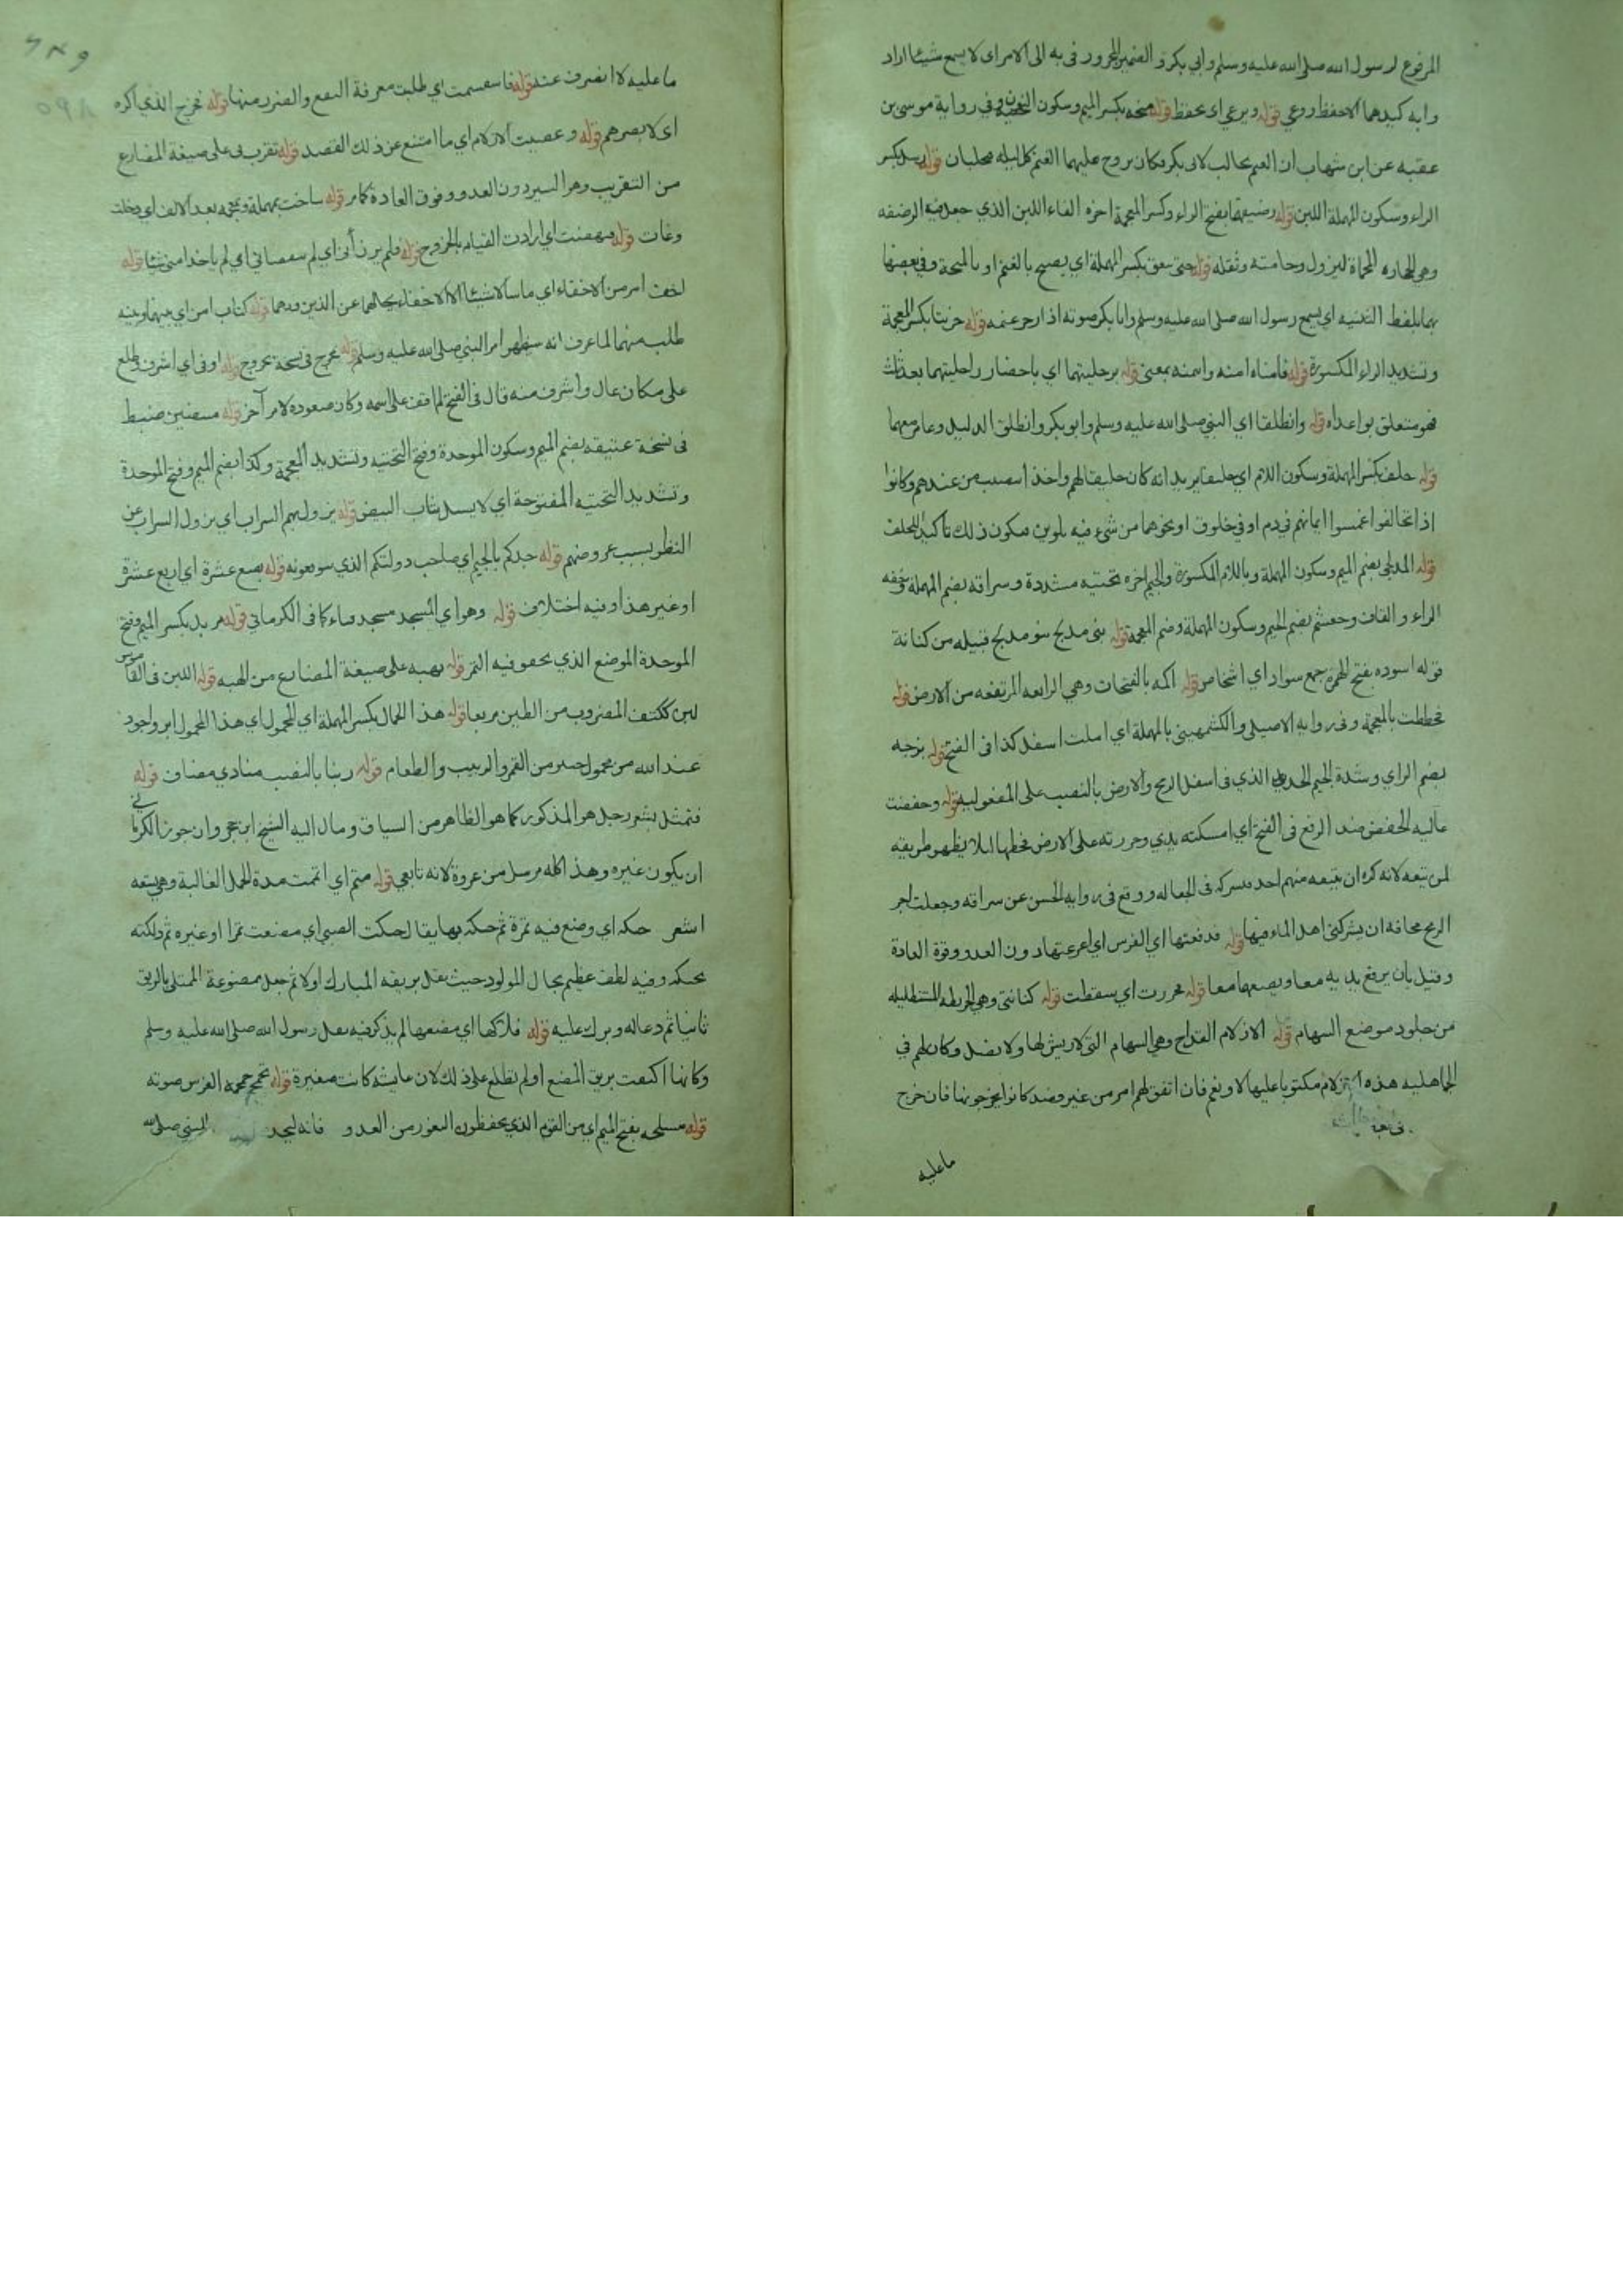 المرفوع لرسول الله صلى الله عليه وسلم وابي بكر و الضمير المجرور فى به الى الامر اى لا يسمع شيئا اراد
وابه كيدهما الاحفظ روعي قوله ويرعي اى يحفظ قوله منحه بكسر الميم وسكون النون وفى رواية موسى بن
عقبه عن ابن شهاب ان الغنم لابى بكر فكان يروح عليهما الغنم كل ليله فيحلبان قوله رسل بكسر
الراء وسكون المهملة اللبن قوله رضيفهما بفتح الراء وكسر المعجمة اخره الفاء اللبن الذي جعل فيه الرضفه
وهى الحجاره المحماة ليزول وخامته وثقله قوله حتى ينعق بكسر المهملة اي يصيح بالغنم او بالمنحة وفى بعضها
بهما بلفظ التثنيه اي يسمع رسول الله صلى الله عليه وسلم وابا بكر صوته اذا زجر غنمه قوله خريتا بكسر المعجمة
وتشديد الراء المكسورة قوله فامناه امنه وائمنه بمعنى قوله برحليتهما اي باحضار راحليتهما بعد ثلث
فهو متعلق بواعداه قوله وانطلقا اي النبي صلى الله عليه وسلم وابو بكر وانطلق الدليل وعامر معهما
قوله حلف بكسر المهملة وسكون اللام اي حليفا يريد انه كان حليفا لهم واخذ بنصيب من عندهم وكانوا
اذا تحالفوا غمسوا ايمانهم فى دم او فى خلوق او نحوهما من شىء فيه تلوين فيكون ذلك تأكيدا للحلف
قوله المدلجى بضم الميم وسكون المهملة وباللام المكسورة والجيم اخره تحتيه مشددة وسراقه بضم المهملة وخفه
الراء و القاف وجعشم بضم الجيم وسكون المهملة وضم المعجمة قوله بنى مدلج بنو مدلج قبيله من كنانة
قوله اسوده بفتح الهمزة جمع سواد اي اشخاص قوله اكمه بالفتحات وهي الرابعه المرتفعه من الارض قوله
فخططت بالمعجمة وفى روايه الاصيلى والكشميهينى بالمهملة اي املت اسفله كذا فى الفتح قوله بزجه
بضم الزاي وشدة الجيم الحديد الذي فى اسفل الرمح والارض بالنصب على المفعوليه قوله وخفضت
عاليه الخفض ضد الرفع فى الفتح اي امسكته بيدي وجررته على الارض فخطها لئلا يظهر طريقه
لمن تبعه لانه كره ان يتبعه منهم احد فيشركه فى الجعاله ووقع فى روايه الحسن عن سراقه وجعلت اجر
الرمح مخافة ان يشركنى اهل الماء فيها قوله فدفعتها اي الفرس اي اسرعتها دون العدو وفوق العادة
وقيل بان يرفع يديه معا ويضعهما معا قوله فخررت اي سقطت قوله كنانتى وهى الخريطه المستطيله
من جلود موضع السهام قوله الازلام القداح وهى السهام التى لا ريش لها ولا نصل وكان لهم في
الجاهليه هذه الازلام مكتوبا عليها لا ونعم فان اتفق لهم امر من غير قصد كانوا يخرجونها فان خرج
ما عليه
ما عليه لا انصرف عنه قوله فاستقسمت اي طلبت معرفة النفع والضرر منها قوله فخرج الذي اكره
اى لا يضرهم قوله وعصيت الازلام اي ما امتنع عن ذلك القصد قوله تقرب بى على صيغة المضارع
من التقريب وهو السير دون العدو وفوق العادة كما مر قوله ساخت بمهملة ومعجمه بعد الالف اي دخلت
وغابت قوله فنهضت اي ارادت القيام بالخروج قوله فلم يرزآنى اي لم ينقصانى اي لم ياخذا منى شيئا قوله
اخف امر من الاخفاء اي ما سالا شيئا الا الاخفاء بحالهما عن الذين وراهما قوله كتاب امن اي بينهما وبينه
طلب منهما لما عرف انه سيظهر امر النبى صلى الله عليه وسلم قوله عرج فى نسخة بخروج قوله اوفى اي اشرف وطلع
على مكان عال واشرف منه قال فى الفتح لم اقف على اسمه وكان صعوده لامر آخر قوله مبيضين ضبط
فى نسخة عتيقه بضم الميم وسكون الموحدة وفتح التحتيه وتشديد المعجمة وكذا بضم الميم وفتح الموحدة
وتشديد التحتيه المفتوحة اي لابسين ثياب البيض قوله يزول بهم السراب اي يزول السراب عن
النظر بسبب عروضهم قوله جدكم بالجيم اي صاحب دولتكم الذي تتوقعونه قوله بضع عشرة اي اربع عشرة
او غير هذا وفيه اختلاف قوله وهو اي المسجد مسجد قباء كما فى الكرماني قوله مربد بكسر الميم وفتح
الموحدة الموضع الذي يجفف فيه التمر قوله يهبه على صيغة المضارع من الهبه قوله اللبن فى القاموس
لبن ككتف المضروب من الطين مربعا قوله هذا الحمال بكسر المهملة اي المحمول اي هذا المحمول ابر واجود
عند الله من محمول خيبر من التمر والزبيب والطعام قوله ربنا بالنصب منادي مضاف قوله
فتمثل بشعر رجل هو المذكور كما هو الظاهر من السياق ومال اليه الشيخ ابن حجر وان جوز الكرمانى
ان يكون غيره وهذا كله مرسل من عروة لانه تابعي قوله متم اي اتمت مدة الحمل الغالبة وهى تسعه
اشهر حنكه اي وضع فيه تمرة ثم حنكه بها يقال حنكت الصبى اي مضغت تمرا او غيره ثم دلكته
بحنكه وفيه لطف عظيم بحال المولود حيث تفل بريقه المبارك اولا ثم جعل ممضوغة الممتلى بالريق
ثانيا ثم دعا له وبرك عليه قوله فلاكها اي مضغها لم يذكر فيه تفل رسول الله صلى الله عليه وسلم
وكانها اكتفت بريق المضغ او لم تطلع على ذلك لان عايشه كانت صغيرة قوله تحمحم حمحمة الفرس صوته
قوله مسلحه بفتح الميم اي من القوم الذي يحفظون الثغور من العدو فانه النبى صلى الله